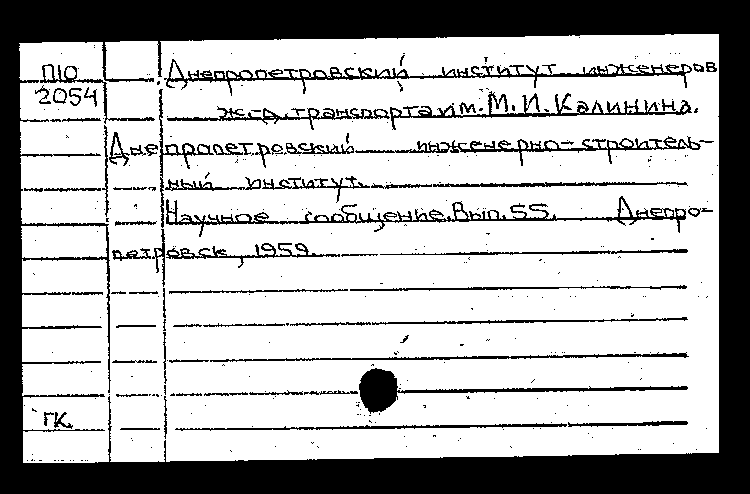 П10 Днепропетровский институт инженеров
2054 ж.-д. транспорта им. М. И. Калинина.
Днепропетровский инженерно-строитель-
ный институт.
Научное сообщение. Вып. 55. Днепро-
петровск, 1959.
ГК.